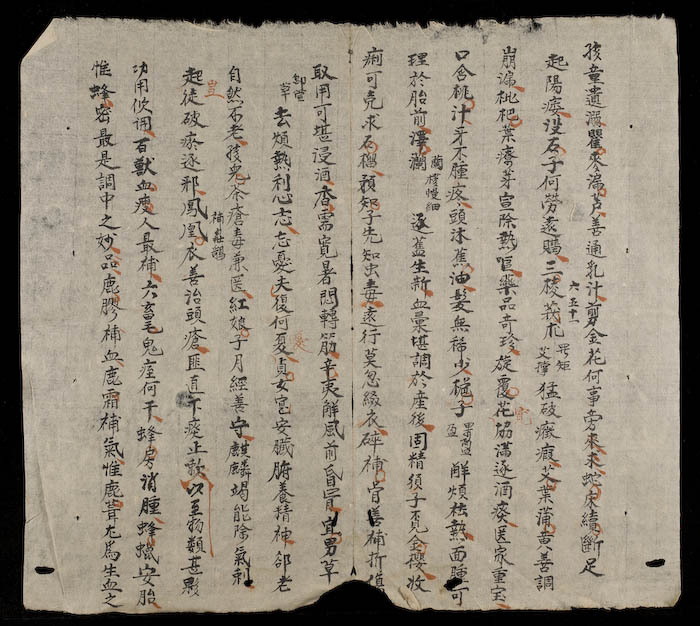 孩童遺溺瞿麥漏芦善通乳汁剪金花何事旁來求蛇床續斷足
起陽痿没石子何勞遠賜三稜莪朮猛破癥瘕艾葉蒲黄善調
崩漏枇杷葉療芽宣除熱嘔藥品奇珍旋覆花協滿逐酒痰医家重宝
口含桃汁牙不腫疼頭沐蕉油髮無稀少梔子觧煩祛熱面腫可
理於胎前澤蘭逐舊生新血暈堪調於産後固精須子覓金櫻收
痢可免求石榴預知子先知虫毒遠行莫忽綠衣碎補骨善補折傷
取用可堪浸酒香需寛暑悶轉筋辛夷觧風前昏冒宜男草
去煩熱利心志忘憂夫復何憂貞女宮安臟腑養精神却老
自然不老孩兒茶瘡毒兼医紅娘子月經善守麒麟竭能除氣刺
起徒破瘀逐邪鳳凰衣善治頭瘡匪直下痰止欬以至物類甚影
功用攸調百獸血瘦人最補六畜毛鬼疰何干蜂房消腫蜂蠟安胎
惟蜂蜜最是調中之妙品鹿膠補血鹿霜補氣惟鹿茸尤為生血之